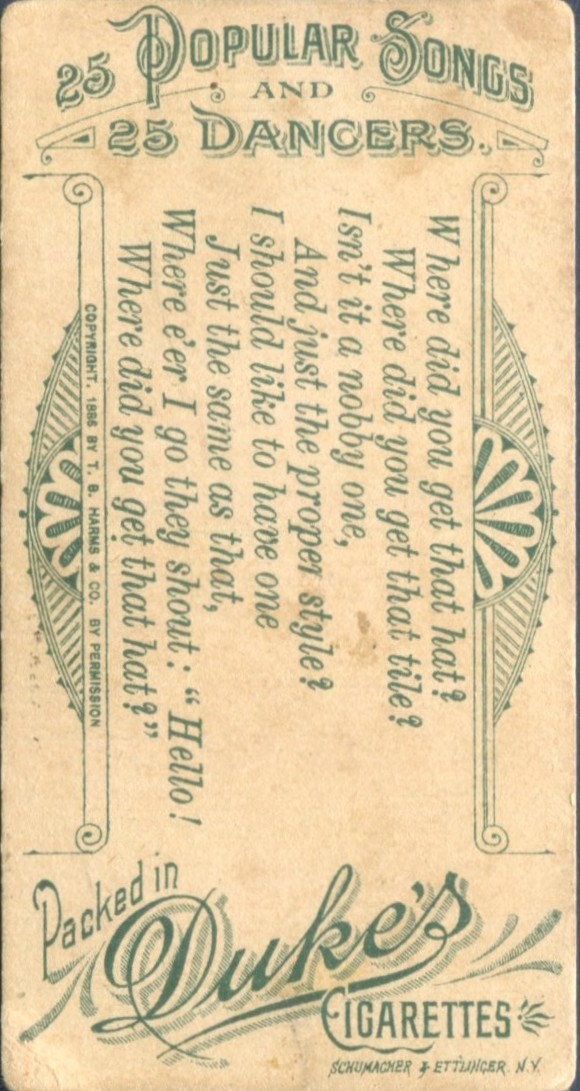 25 POPULAR SONGS
AND
25 DANCERS.
Where did you get that hat?
Where did you get that tile?
Isn't it a nobby one,
And just the proper style?
I should like to have one
Just the same as that,
Where e'er I go they shout: "Hello!
Where did you get that hat?"
COPYRIGHT. 1886 BY T. B. HARMS & CO. BY PERMISSION
Packed in
Duke's
CIGARETTES
SCHUMACHER & ETTLINGER. N.Y.